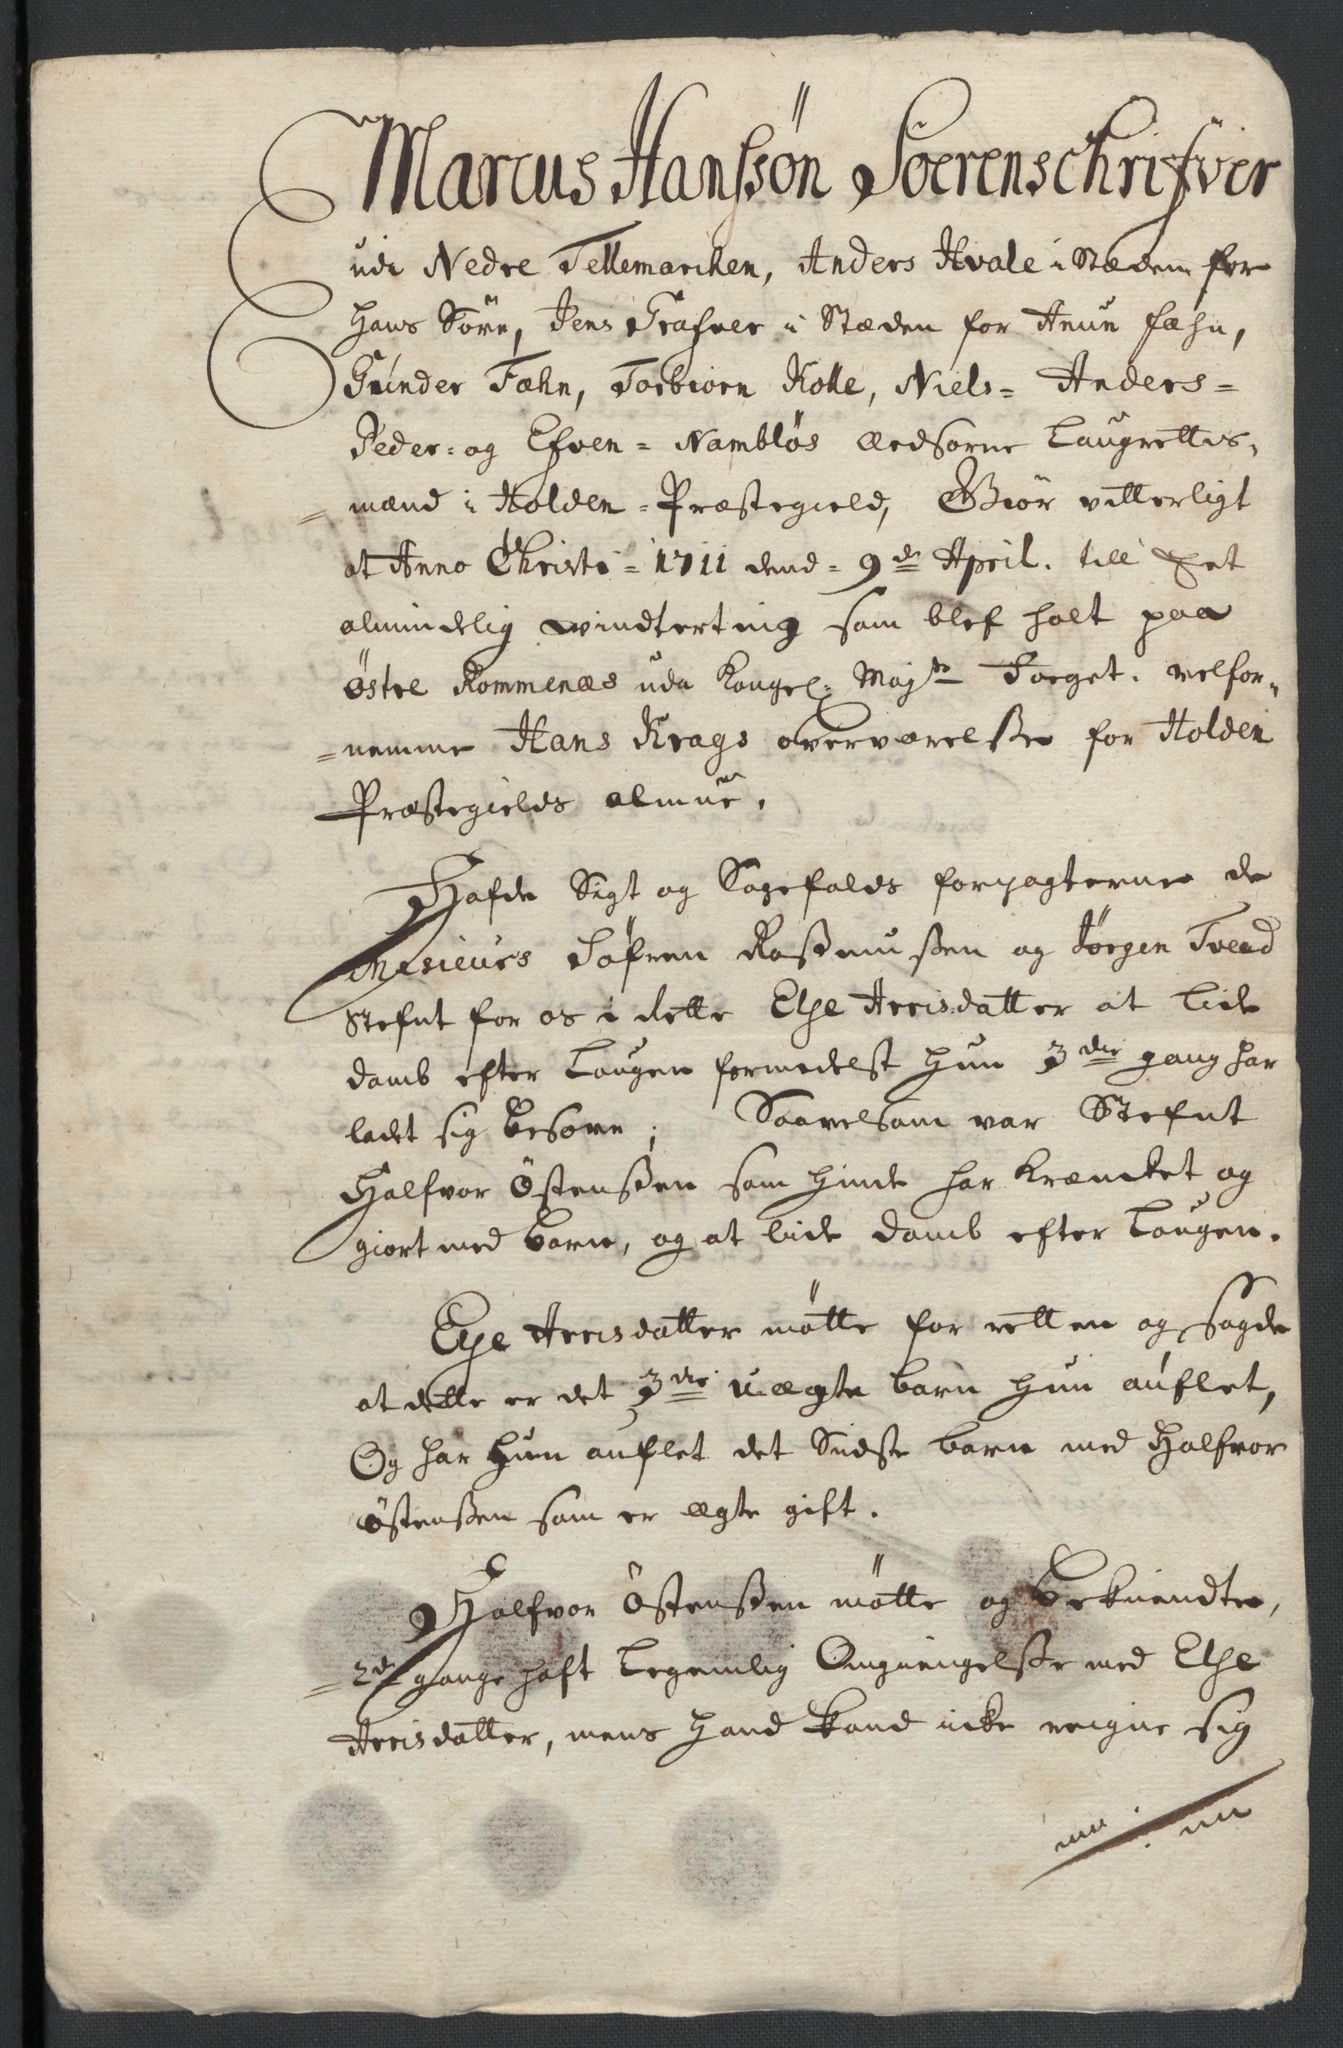 Marcus Hanssøn Soerenschrifver
udi Nedre Tellemarchen, Anders Hvale i Stæden for
Hans Sørn, Jens Grafver i Stæden for Anun fæhn,
Gunder Fæhn, Torbiørn Kolle, Niels- Anders-
Peder- og Efven- Nambløs Aedsorne Laugrettis,
mænd i Holden-Præstegield, Giør vitterligt
at Anno Christi- 1711 dend- 9de April. till Et
almindelig vindterting som blef holt paa
Østre Rommenæs udi Kongel: Mayts Foeget. velfor-
nemme Hans Krags overværelsse for Holden
Præstegields almue.
Hafde Sigt og Sagefalds forpagterne de
Mesieurs Søfren Rassmussen og Jørgen Tvead
Stefnt for os i dette Else Arrisdatter at lide
domb efter Laugen formedelst hun 3die gang har
ladt sig besove; Saavelsom var Stefnt
Halfvor Østenssen som hinde har Krænket og
giort med barn, og at lide domb efter Laugen.
Else Arrisdatter møtte for retten og sagde
at dette er det 3die uægte barn hun auflet,
Og har hun auflet det Sidste barn med Halfvor
Østenssen som er ægte gift.
Halfvor Østenssen møtte og bekiendte,
2de gange haft Legemlig Omgiengelsse med Else
Arrisdatter, mens hand kand icke reigne sig